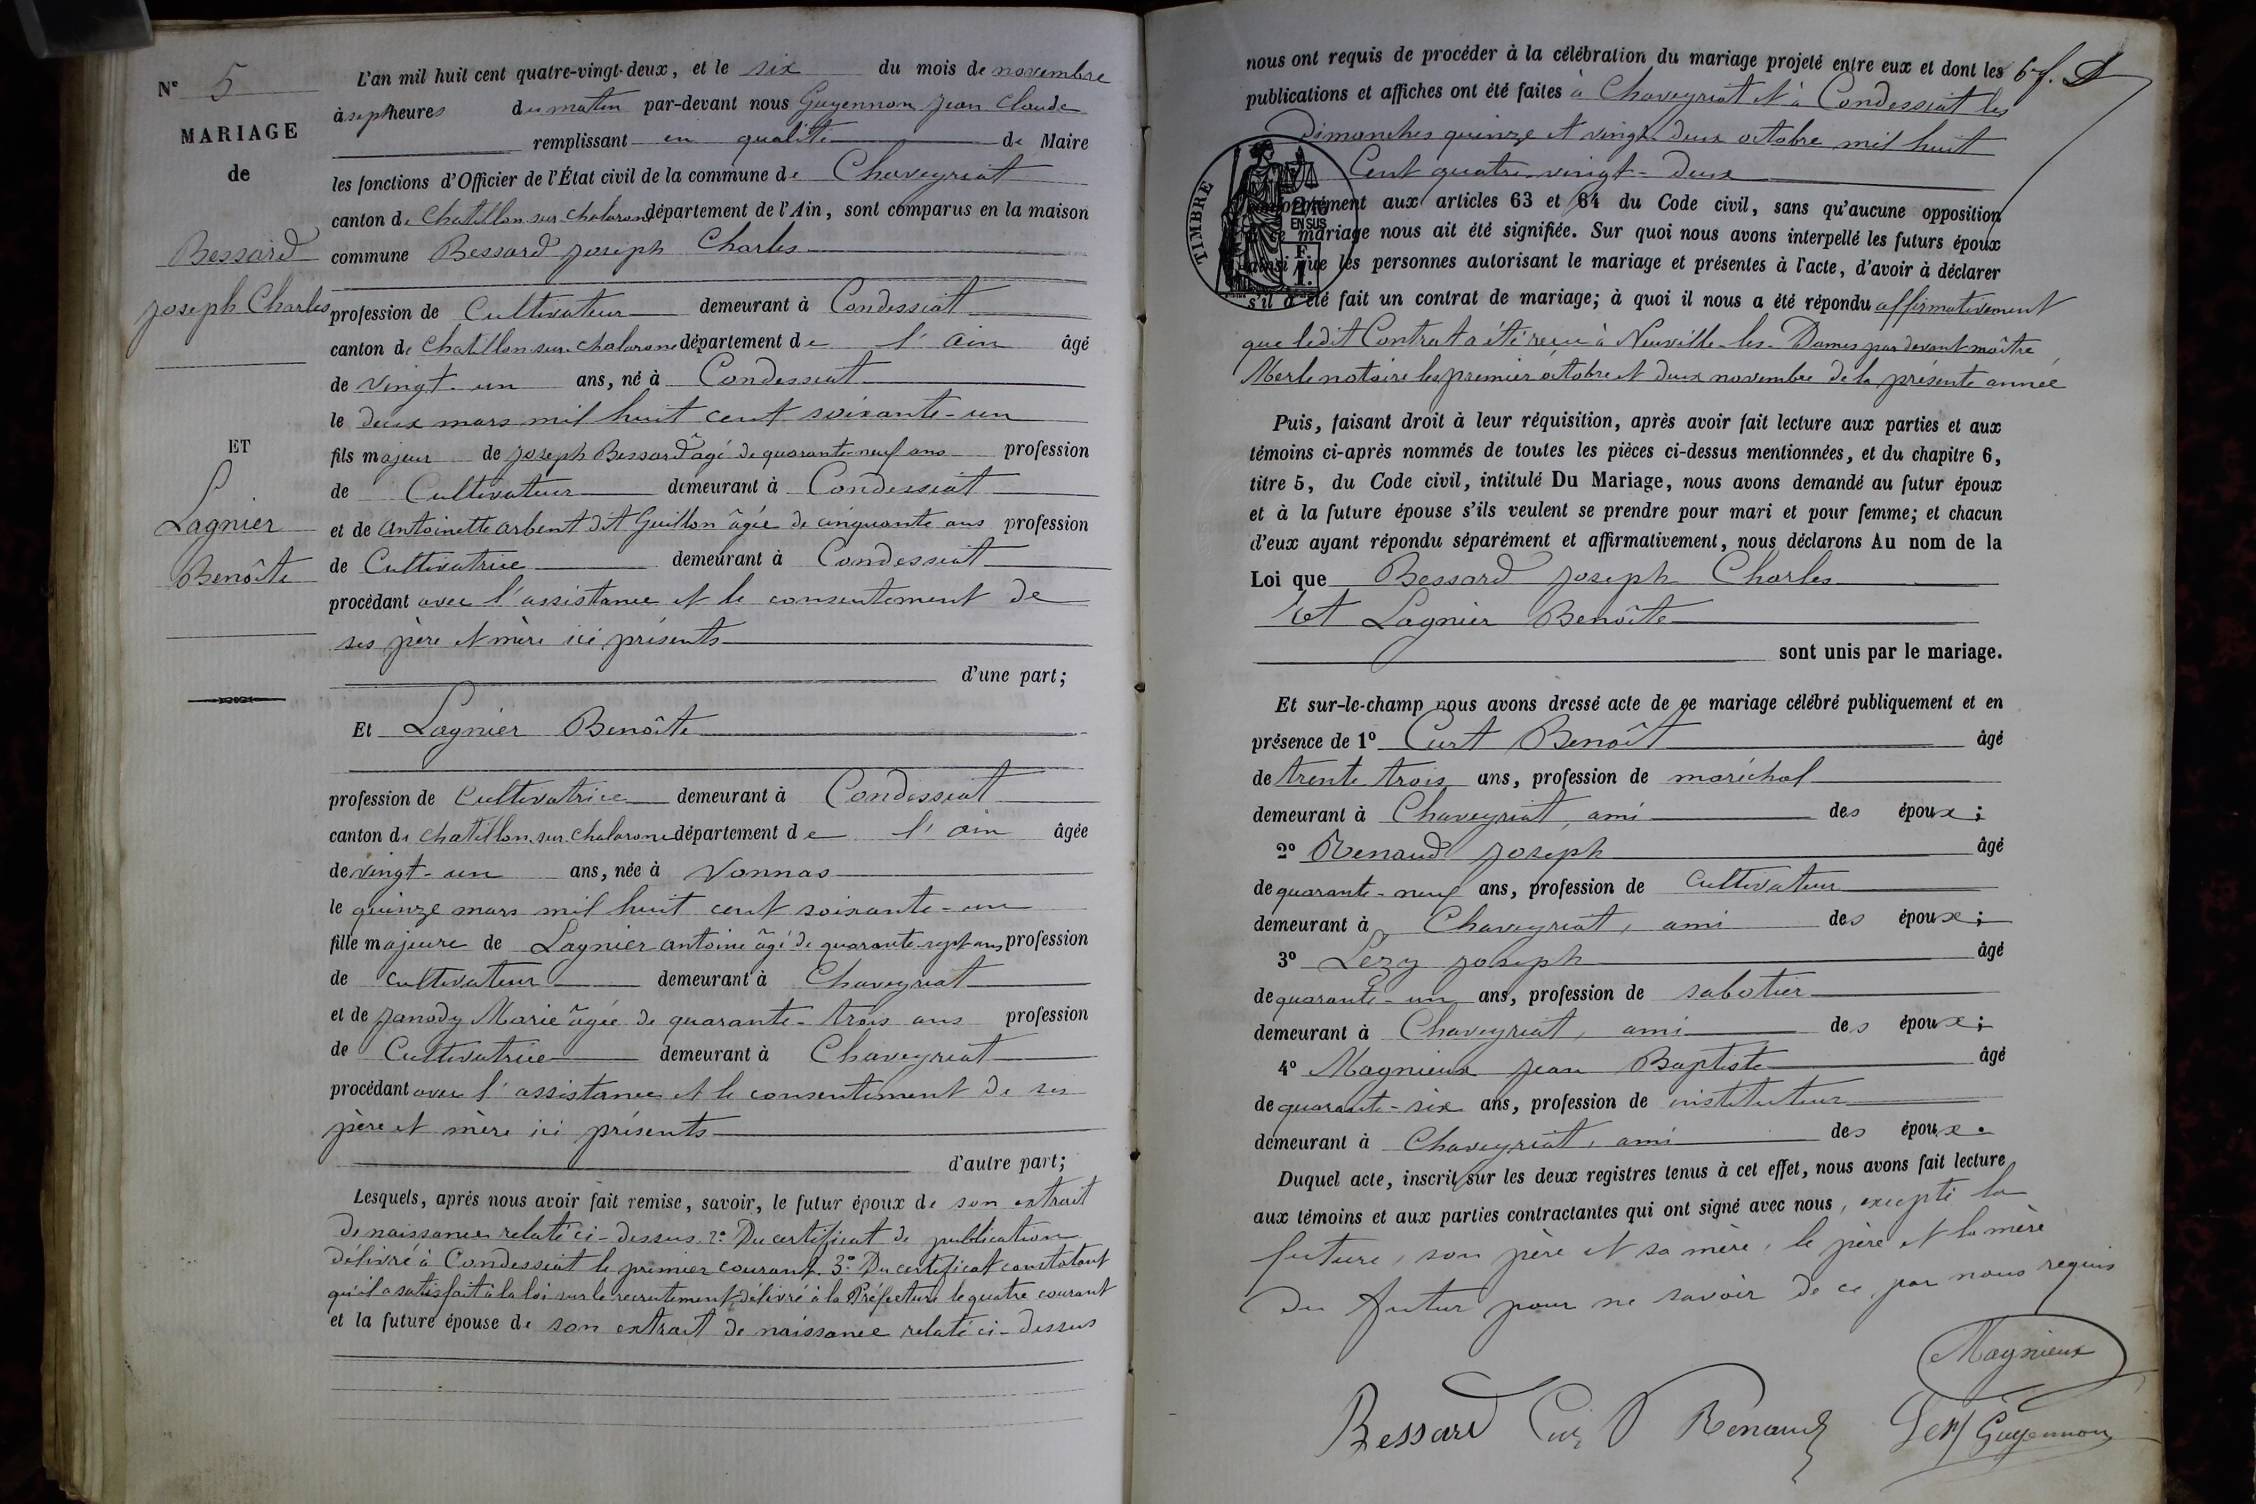 N° 5
MARIAGE
de
Bessard
Joseph Charles
ET
Lagnier
Benoîte
L'an mil huit cent quatre-vingt-deux, et le six du mois de novembre
à sept heures du matin par-devant nous Guyennon Jean Claude
remplissant en qualité de Maire
les fonctions d'Officier de l'État civil de la commune de Chaveyriat
canton de Chatillon sur Chalaronne département de l'Ain, sont comparus en la maison
commune Bessard Joseph Charles
profession de Cultivateur demeurant à Condessiat
canton de Chatillon sur Chalaronne département de l'Ain âgé
de vingt-un ans, né à Condessiat
le deux mars mil huit cent soixante-un
fils majeur de Joseph Bessard âgé de quarante-neuf ans profession
de Cultivateur demeurant à Condessiat
et de Antoinette Arbent dit Guillon âgée de cinquante ans profession
de Cultivatrice demeurant à Condessiat
procédant avec l'assistance et le consentement de
ses père et mère ici présents
d'une part;
Et Lagnier Benoîte
profession de Cultivatrice demeurant à Condessiat
canton de Chatillon sur Chalaronne département de l'Ain âgée
de vingt-un ans, née à Vonnas
le quinze mars mil huit cent soixante-un
fille majeure de Lagnier Antoine âgé de quarante-sept ans profession
de cultivateur demeurant à Chaveyriat
et de Janody Marie âgée de quarante-trois ans profession
de Cultivatrice demeurant à Chaveyriat
procédant avec l'assistance et le consentement de ses
père et mère ici présents
d'autre part;
Lesquels, après nous avoir fait remise, savoir, le futur époux de son extrait
de naissance relaté ci-dessus. 2° Du certificat de publication
délivré à Condessiat le premier courant. 3° Du certificat constatant
qu'il a satisfait à la loi sur le recrutement, délivré à la Préfecture le quatre courant
et la future épouse de son extrait de naissance relaté ci-dessus
nous ont requis de procéder à la célébration du mariage projeté entre eux et dont les
publications et affiches ont été faites à Chaveyriat et à Condessiat les
Dimanches quinze et vingt-deux octobre mil huit
Cent quatre-vingt-deux
TIMBRE
2/10
EN SUS
F
1.
conformément aux articles 63 et 64 du Code civil, sans qu'aucune opposition
ce mariage nous ait été signifiée. Sur quoi nous avons interpellé les futurs époux
ainsi que les personnes autorisant le mariage et présentes à l'acte, d'avoir à déclarer
s'il a été fait un contrat de mariage; à quoi il nous a été répondu affirmativement
que ledit Contrat a été reçu à Neuville-les-Dames par devant maître
Merle notaire les premier octobre et deux novembre de la présente année
Puis, faisant droit à leur réquisition, après avoir fait lecture aux parties et aux
témoins ci-après nommés de toutes les pièces ci-dessus mentionnées, et du chapitre 6,
titre 5, du Code civil, intitulé Du Mariage, nous avons demandé au futur époux
et à la future épouse s'ils veulent se prendre pour mari et pour femme; et chacun
d'eux ayant répondu séparément et affirmativement, nous déclarons Au nom de la
Loi que Bessard Joseph Charles
Et Lagnier Benoîte
sont unis par le mariage.
Et sur-le-champ nous avons dressé acte de ce mariage célébré publiquement et en
présence de 1° Curt Benoît âgé
de trente trois ans, profession de maréchal
demeurant à Chaveyriat, ami des époux;
2° Renaud Joseph âgé
de quarante-neuf ans, profession de Cultivateur
demeurant à Chaveyriat, ami des époux;
3° Lezy Joseph âgé
de quarante-un ans, profession de sabotier
demeurant à Chaveyriat, ami des époux;
4° Magnieux Jean Baptiste âgé
de quarante-six ans, profession de instituteur
demeurant à Chaveyriat, ami des époux.
Duquel acte, inscrit sur les deux registres tenus à cet effet, nous avons fait lecture
aux témoins et aux parties contractantes qui ont signé avec nous, excepté la
future, son père et sa mère, le père et la mère
du futur pour ne savoir de ce par nous requis
Magnieux
Bessard Renaud Guyennon